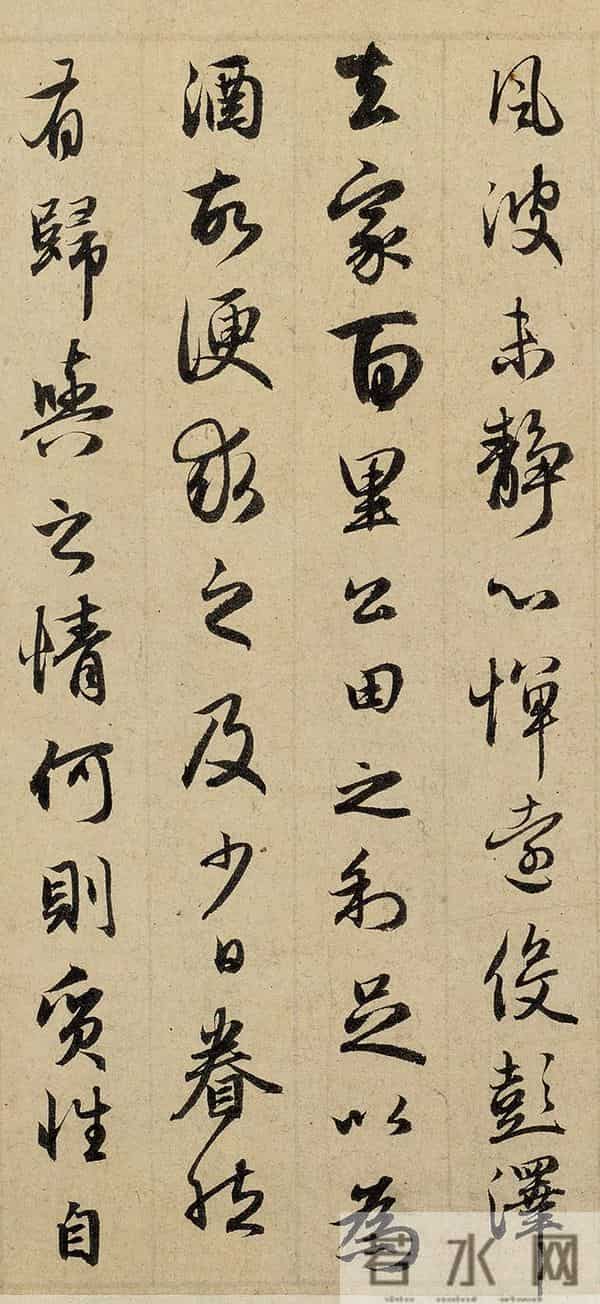 風波未靜心憚遠役彭澤
去家百里公田之利足以為
酒故便求之及少日眷然
有歸與之情何則質性自
若水网